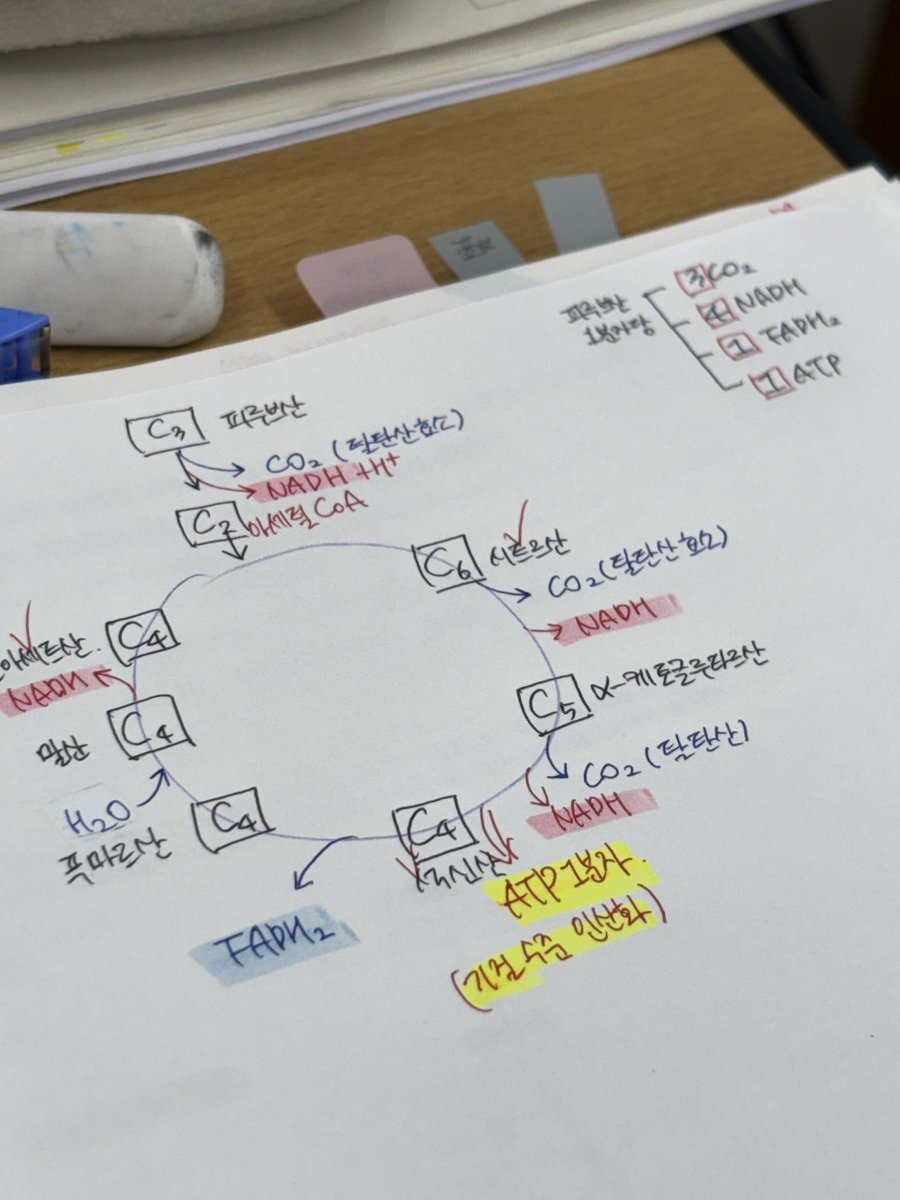 피루브산
1분자당
3 CO₂
4 NADH
1 FADH₂
1 ATP
C₃ 피루브산
CO₂ (탈탄산효소)
NADH +H⁺
C₂ 아세틸 CoA
C₆ 시트르산
CO₂ (탈탄산효소)
NADH
C₅ α-케토글루타르산
CO₂ (탈탄산)
NADH
C₄ 석신산
ATP 1분자.
(기질 수준 인산화)
FADH₂
C₄
푸마르산
H₂O
C₄
말산
NADH
C₄
아세트산.